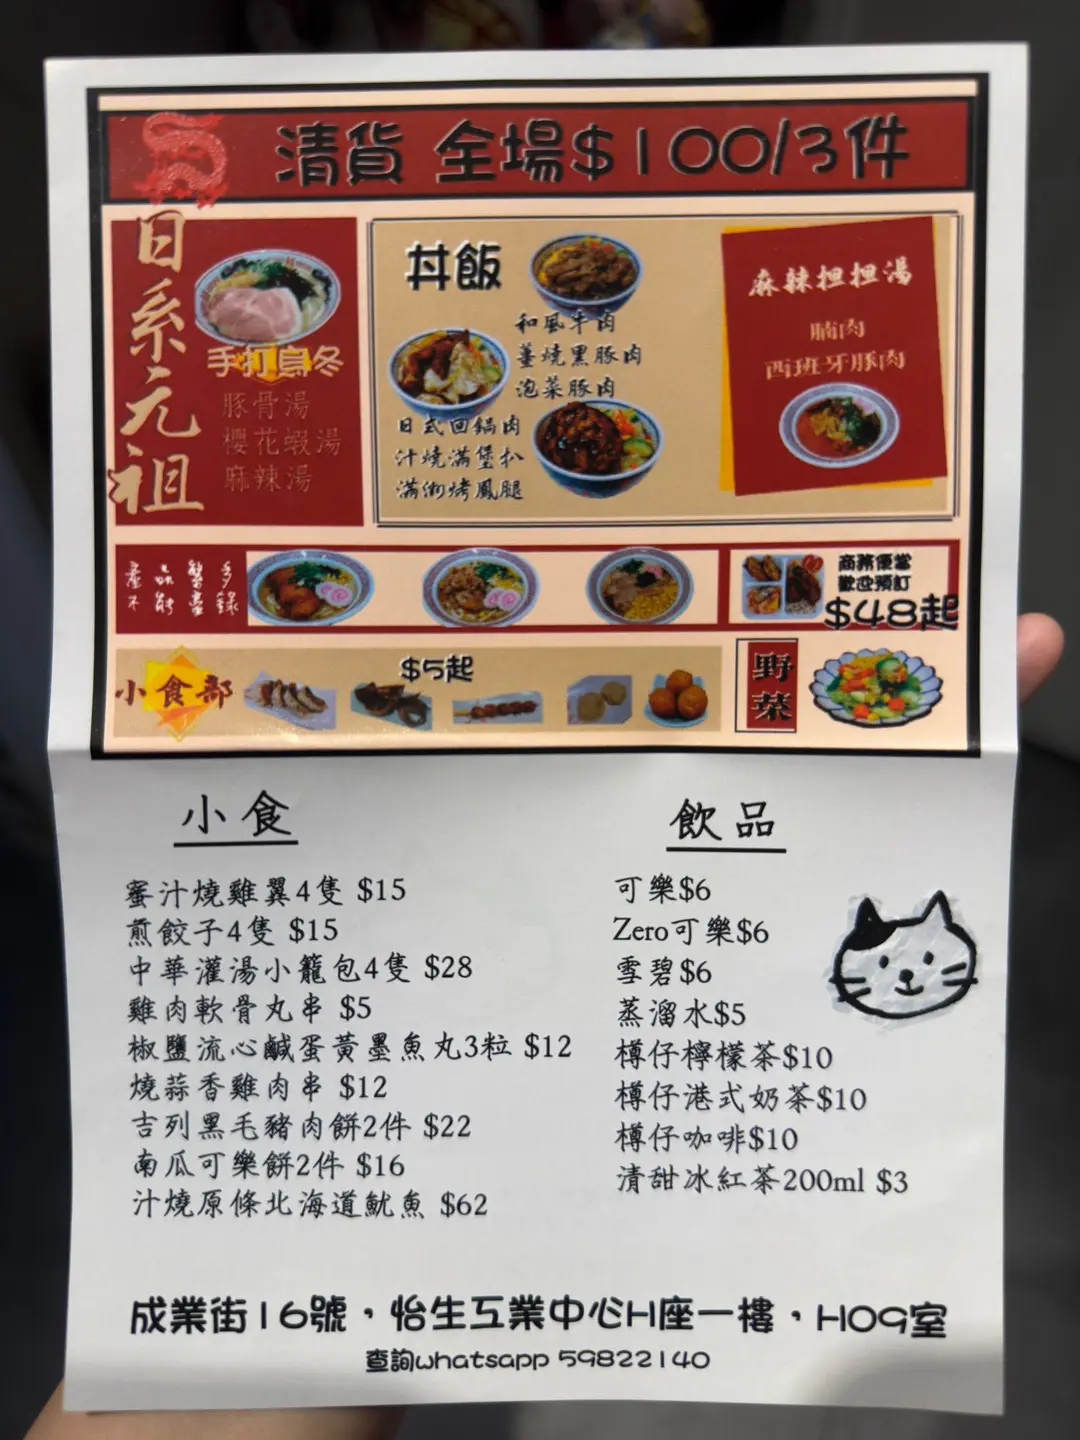 清貨 全場$100/3件
日系元祖
手打烏冬
豚骨湯
櫻花蝦湯
麻辣湯
丼飯
和風牛肉
薑燒黑豚肉
泡菜豚肉
日式回鍋肉
汁燒滿堡扒
滿術烤鳳腿
麻辣担担湯
腩肉
西班牙豚肉
產品繁多
不能盡錄
商務便當
歡迎預訂
$48起
小食部
$5起
野菜
小食
蜜汁燒雞翼4隻 $15
煎餃子4隻 $15
中華灌湯小籠包4隻 $28
雞肉軟骨丸串 $5
椒鹽流心鹹蛋黃墨魚丸3粒 $12
燒蒜香雞肉串 $12
吉列黑毛豬肉餅2件 $22
南瓜可樂餅2件 $16
汁燒原條北海道魷魚 $62
飲品
可樂$6
Zero可樂$6
雪碧$6
蒸溜水$5
樽仔檸檬茶$10
樽仔港式奶茶$10
樽仔咖啡$10
清甜冰紅茶200ml $3
成業街16號，怡生工業中心H座一樓，H09室
查詢whatsapp 59822140